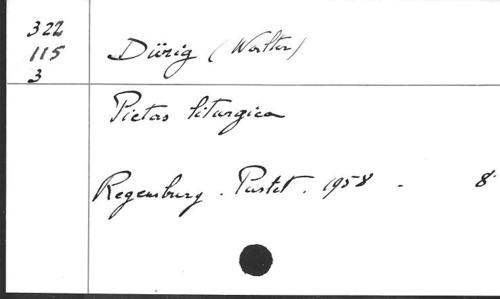 322
115
3
Dürig (Walter)
Pietas liturgica
Regensburg. Pustet. 1958 - 8°